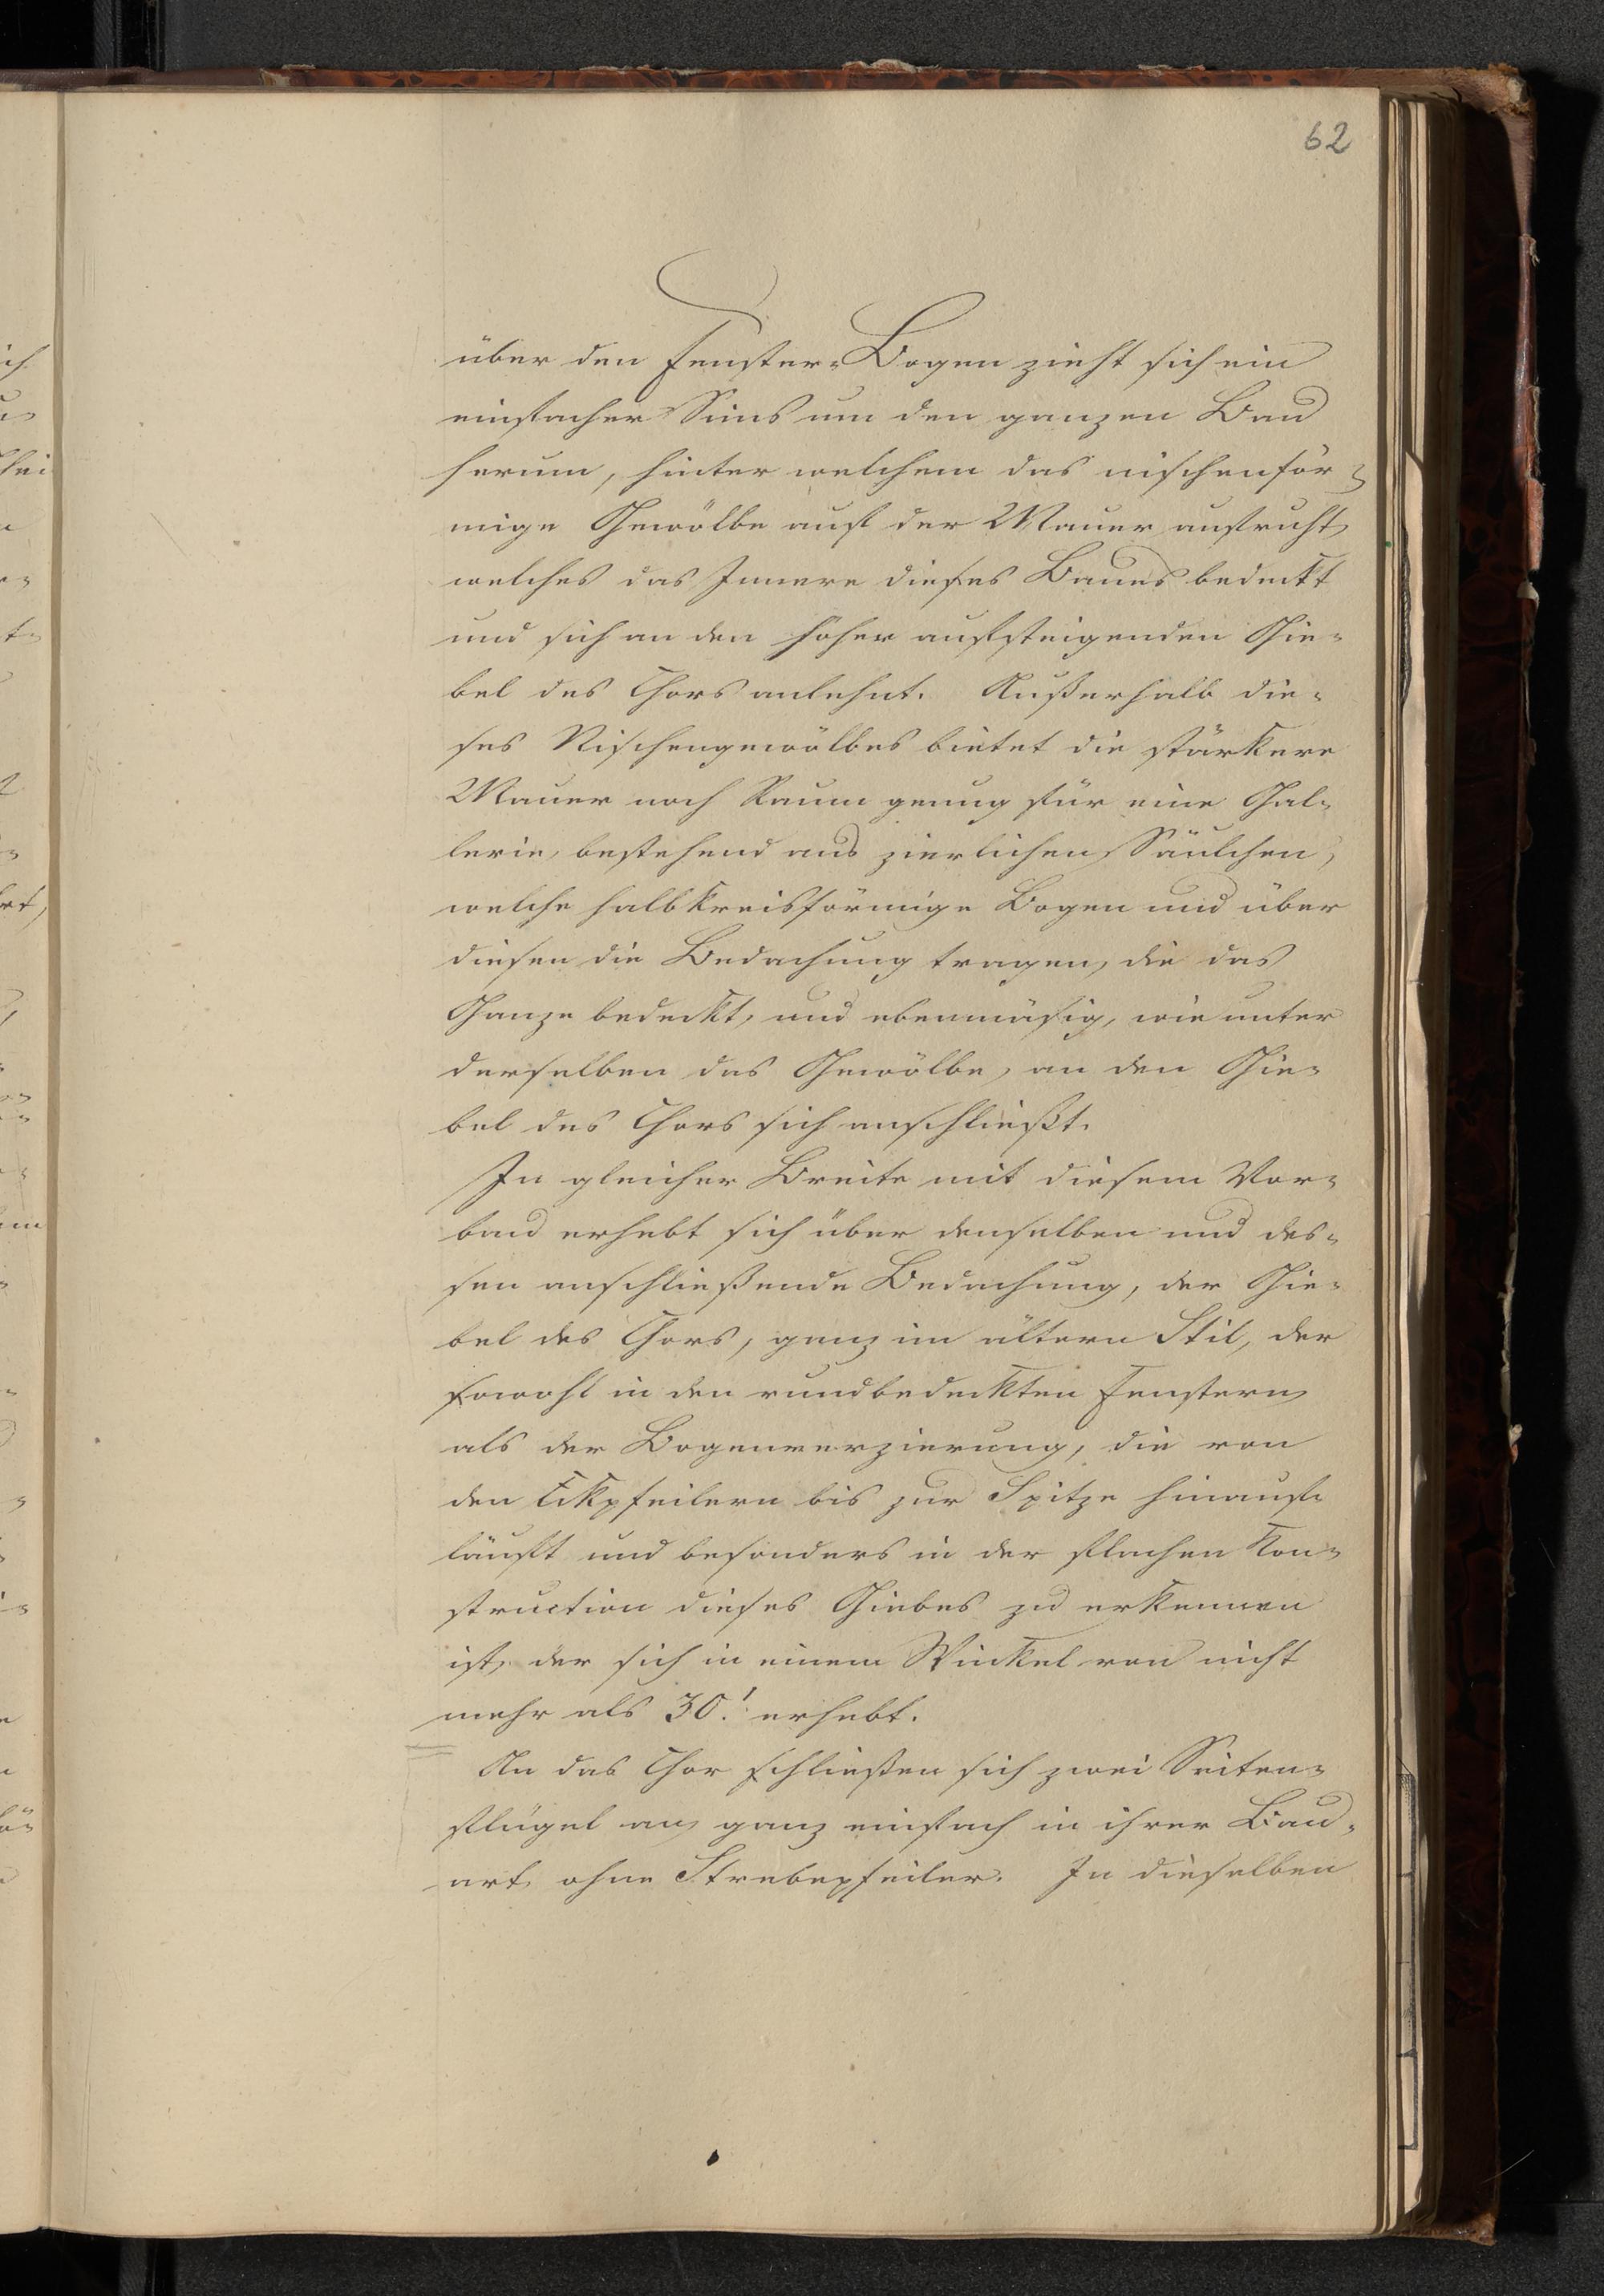 62
über den Fenster-Bogen zieht sich ein
einfacher Sims um den ganzen Bau
herum, hinter welchem das nischenför-
mige Gewölbe auf der Mauer aufruht,
welches das Innere dieses Baues bedeckt
und sich an den hoher aufsteigenden Gie-
bel des Chors anlehnt. Außerhalb die-
ses Nischengewölbes bietet die stärkere
Mauer noch Raum genug für eine Gal-
lerie, bestehend aus zierlichen Säulchen,
welche halbkreisförmige Bogen und über
diesen die Bedachung tragen, die das
Ganze bedeckt, und ebenmäsig, wie unter
derselben das Gewölbe, an den Gie-
bel des Chors sich anschließt.
In gleicher Breite mit diesem Vor-
bau erhebt sich über denselben und des-
sen anschließende Bedachung, der Gie-
bel des Chors, ganz im ältern Stil, der
sowohl in den rundbedeckten Fenstern,
als der Bogenverzierung, die von
den Eckpfeilern bis zur Spitze hinauf-
läuft und besonders in der flachen Kon-
struction dieses Giebes zu erkennen
ist, der sich in einem Winkel von nicht
mehr als 30.' erhebt.
An das Chor schließen sich zwei Seiten-
flügel an, ganz einfach in ihrer Bau-
art, ohne Strebepfeiler. In dieselben